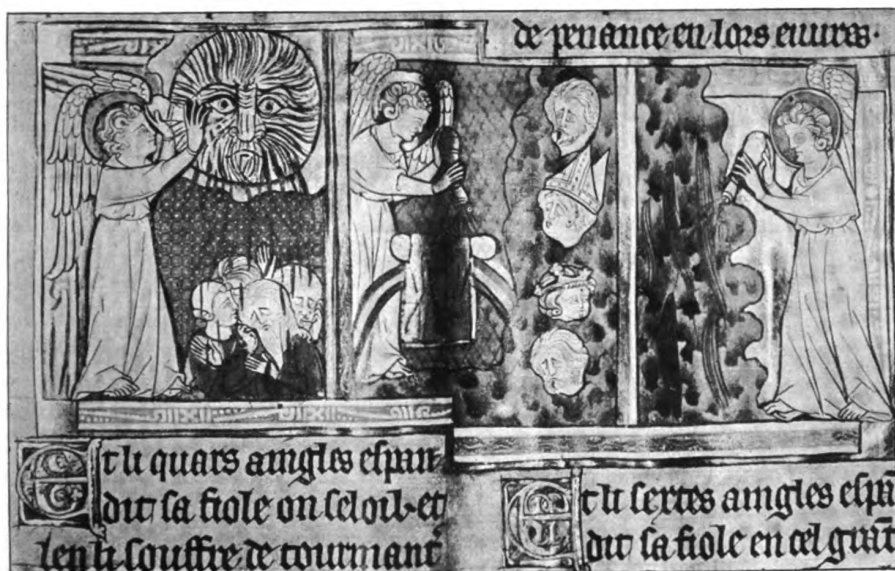 de penance en lors euures.
Et li quars aingles espan-
dit sa fiole on soloil. et
len li souffre de tourmant
Et li sextes aingles espā
dit sa fiole en cel grāt